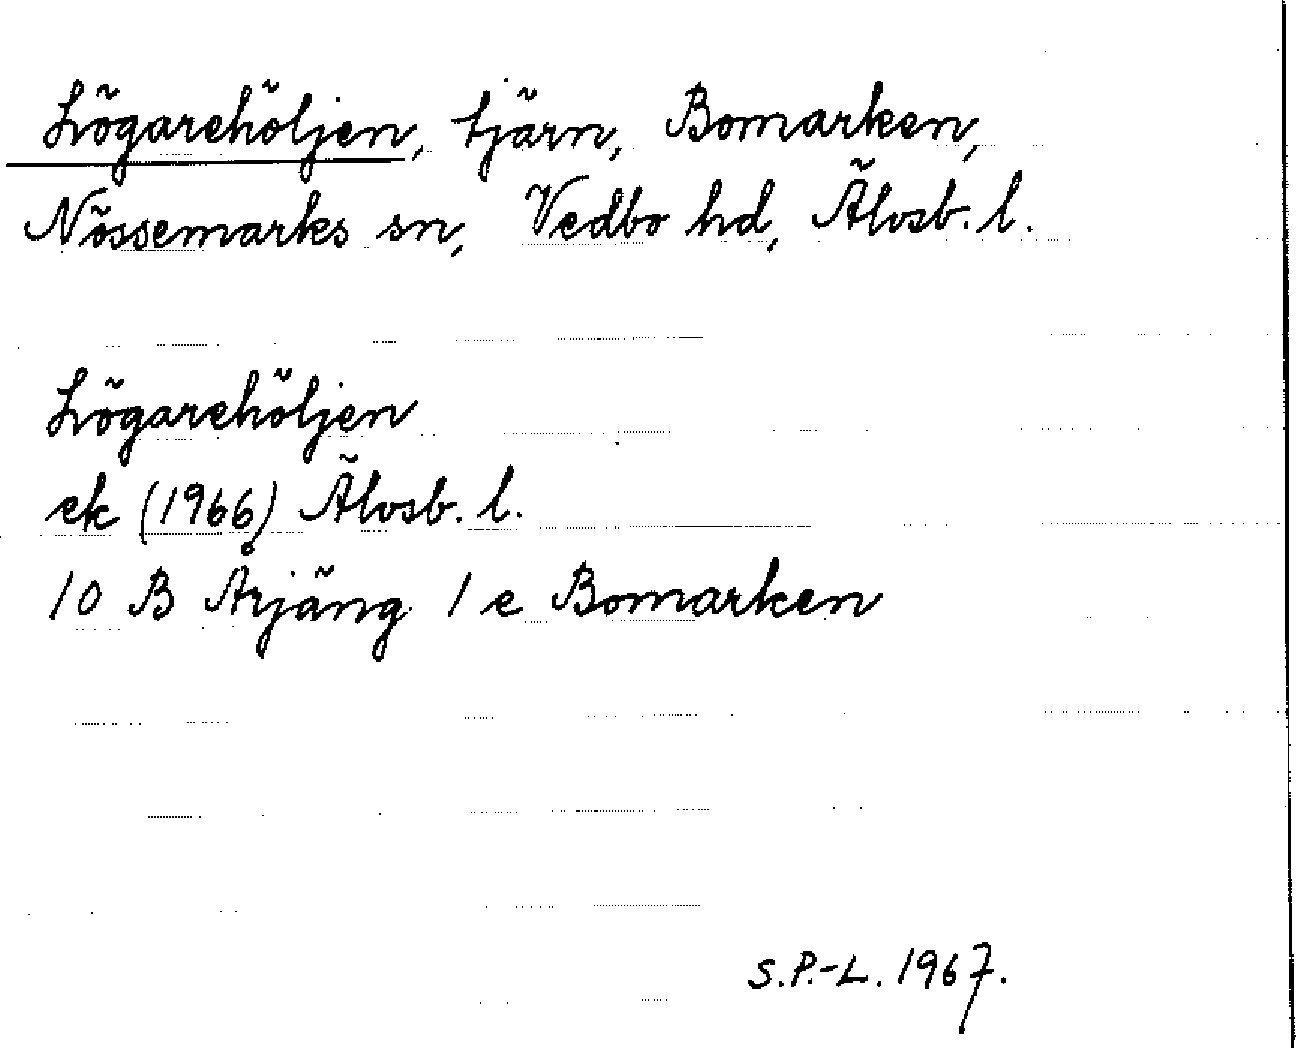 Lögarehöljen, tjärn, Bomarken,
Nössemarks sn, Vedbo hd, Älvsb. l.
Lögarehöljen
ek (1966) Älvsb. l.
10 B Årjäng 1 e Bomarken
S.P.-L. 1967.